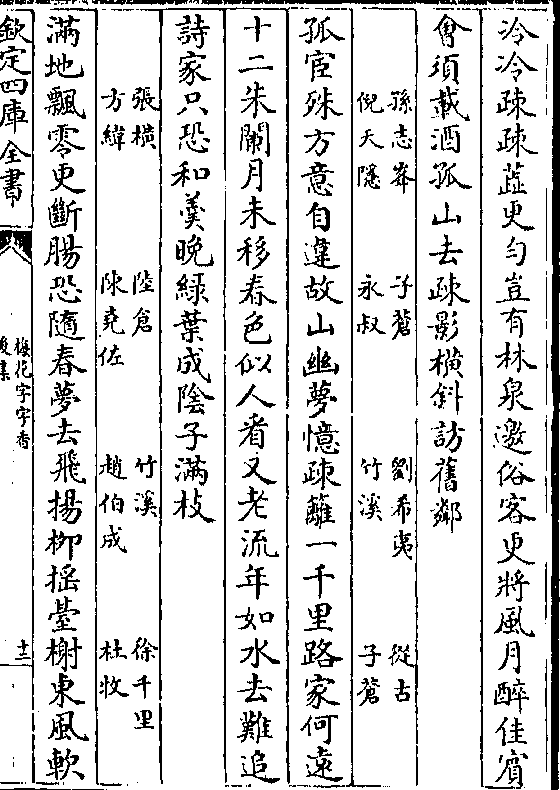 泠泠疎疎蕋更勻豈有林泉邀俗客更將風月醉佳賓
會須載酒孤山去疎影橫斜訪舊鄰
孫志舉　子蒼　劉希夷　從古
倪天隱　永叔　竹溪　子蒼
孤宦殊方意自違故山幽夢憶疎籬一千里路家何遠
十二朱闌月未移春色似人看又老流年如水去難追
詩家只恐和羮晩綠葉成陰子滿枝
張橫　陸倉　竹溪　徐千里
方緯　陳堯佐　趙伯成　杜牧
滿地飄零更斷腸恐隨春夢去飛揚柳揺臺榭東風軟
欽定四庫全書
梅花字字香
後集
十二